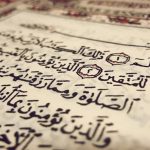 ١ ذَٰلِكَ ٱلْكِتَٰبُ
لِّلْمُتَّقِينَ ٢ ٱلَّذِينَ يُؤْمِنُونَ
ٱلصَّلَوٰةَ وَمِمَّا رَزَقْنَٰهُمْ
وَٱلَّذِينَ يُؤْمِنُونَ بِمَآ